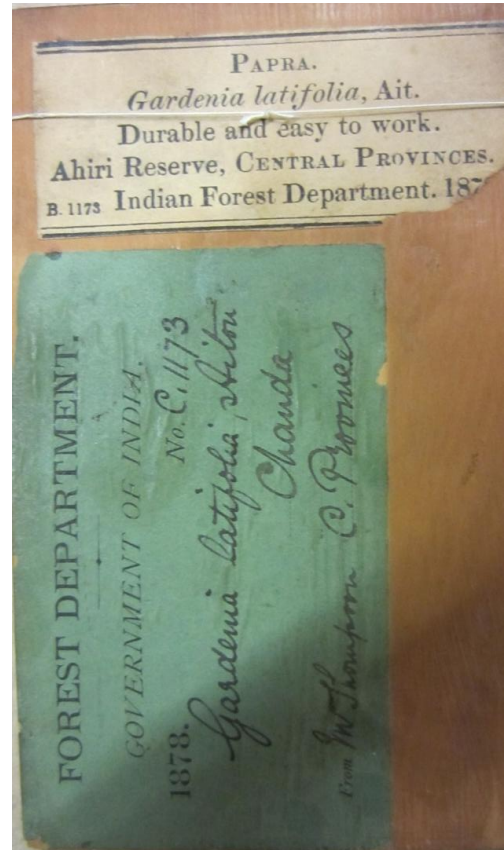 PAPRA.
Gardenia latifolia, Ait.
Durable and easy to work.
Ahiri Reserve, CENTRAL PROVINCES.
B. 1173 Indian Forest Department. 187
FOREST DEPARTMENT.
GOVERNMENT OF INDIA.
1878. No. C. 1173
Gardenia latifolia, Aiton
Chanda
From Mr Thompson C. Provinces